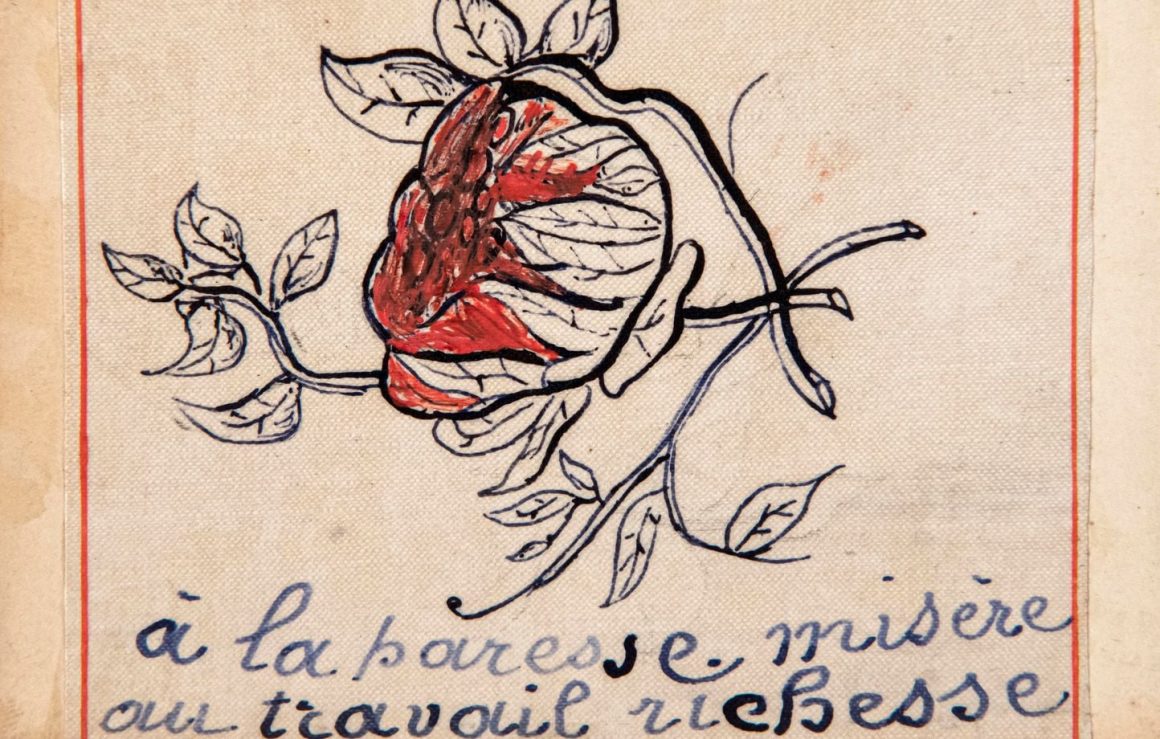 à la paresse misère
au travail richesse